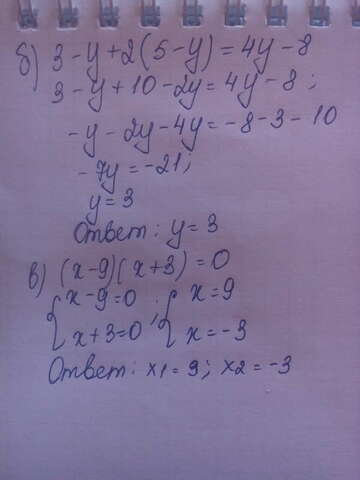 б) 3-y+2(5-y)=4y-8
3-y+10-2y=4y-8;
-y-2y-4y=-8-3-10
-7y=-21;
y=3
Ответ: y=3
в) (x-9)(x+3)=0
{x-9=0 ; {x=9
{x+3=0 {x=-3
Ответ: x1=9; x2=-3